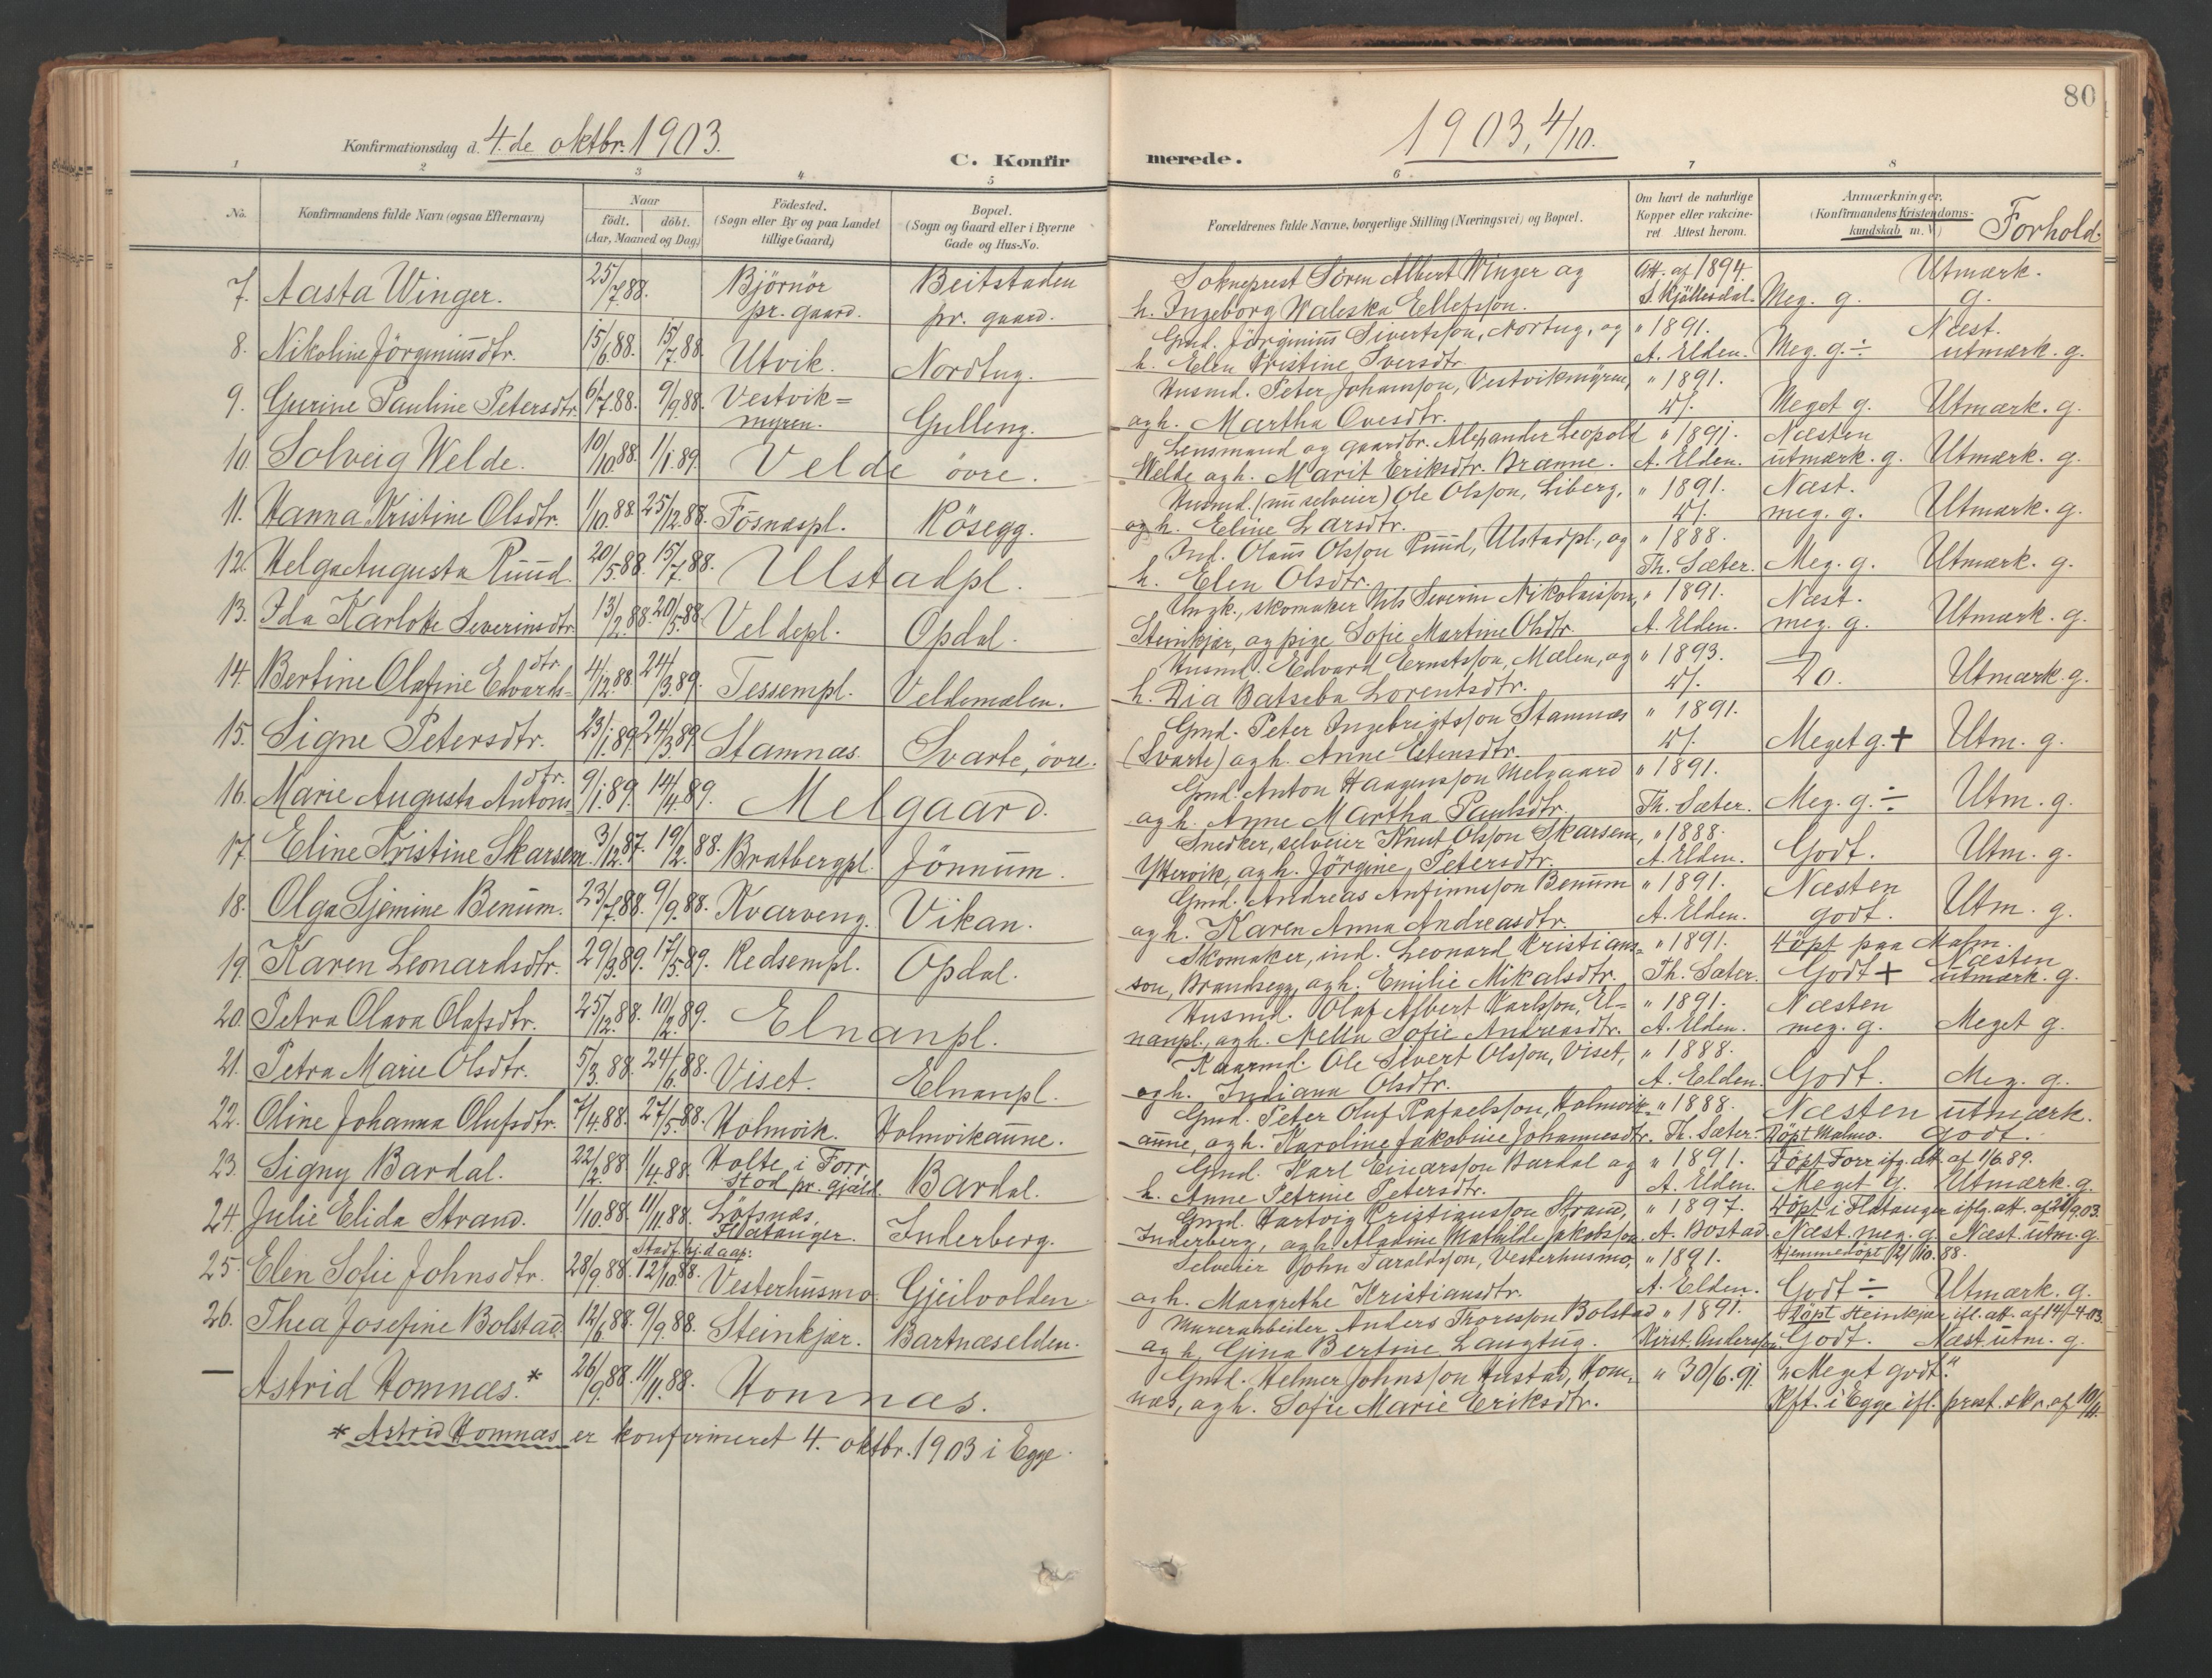 80
Konfirmationsdag d. 4. de oktbr. 1903.
C. Konfir
1903, 4/10.
merede.
1 2 3 4 5
6 7 8
No.
Konfirmandens fulde Navn (ogsaa Efternavn)
Naar
födt. döbt.
(Aar, Maaned og Dag)
Födested.
(Sogn eller By og paa Landet
tillige Gaard)
Bopæl.
(Sogn og Gaard eller i Byerne
Gade og Hus-No.
Forældrenes fulde Navne, borgerlige Stilling (Næringsvei) og Bopæl.
Om havt de naturlige
Kopper eller vakcine-
ret Attest herom.
Anmærkninger.
(Konfirmandens Kristendoms-
kundskab m. V.)
Forhold.
7. Aasta Winger. 25/7.88. Björnör pr. gaard. Beitstaden pr. gaard.
Sokneprest Sören Albert Winger og Att. af 1894. Utmærk.
h. Ingeborg Waleska Ellefsson. S. Kjöllesdal. Meg. g. g.
8. Nikoline Jörginiusdtr. 15/6.88. 15/7.88. Utvik. Nordtug.
Gmd. Jörginius Sivertsson, Nortug, og " 1891. Næst.
h. Elen Kristine Iversdtr. A. Elden. Meg. g. ÷ utmærk. g.
9. Gurine Pauline Petersdtr. 6/7.88. 9/9.88. Vestvik= myren. Gulleng.
Husmd. Peter Johansson, Vestvikmyren, " 1891.
og h. Martha Ovesdtr. Meget g. Utmærk. g.
10. Solveig Welde. 10/10.88. 1/1.89. Velde övre.
Lensmand og gaardbr. Alexander Leopold " 1891. Næsten
Welde og h. Marit Eriksdtr. Brænne. A. Elden. utmærk. g. Utmærk. g.
11. Hanna Kristine Olsdtr. 1/10.88. 25/12.88. Fosnæspl. Kösegg.
Husmd. (nu selveier) Ole Olsson, Liberg, " 1891. Næst.
og h. Eline Larsdtr. meg. g. Utmærk. g.
12. Helga Augusta Ruud. 20/5.88. 15/7.88. Ulstadpl.
Ind. Olaus Olsson Ruud, Ulstadpl., og " 1888.
h. Elen Olsdtr. Th. Sæter. Meg. g. Utmærk. g.
13. Ida Karlotte Severinsdtr. 13/2.88. 20/5.88. Veldepl. Opdal.
Ungk., skomaker Nils Severin Nikolaisson, " 1891. Næst.
Steinkjær, og pige Sofie Martine Olsdtr. A. Elden. meg. g. Utmærk. g.
14. Bertine Olafine Edvards= dtr. 4/12.88. 24/3.89. Tessempl. Veldemælen.
Husmd. Edvard Ernstsson, Mælen, og " 1893.
h. Dia Batseba Lorentsdtr. Do. Utmærk. g.
15. Signe Petersdtr. 23/1.89. 24/3.89. Stamnæs. Svarte, övre.
Gmd. Peter Ingebrigtsson Stamnæs " 1891.
(Svarte) og h. Anne Estensdtr. Meget g. + Utm. g.
16. Marie Augusta Antons dtr. 9/1.89. 14/4.89. Melgaard.
Gmd. Anton Haagensson Melgaard " 1891.
og h. Anne Martha Paulsdtr. Th. Sæter. Meg. g. ÷ Utm. g.
17. Eline Kristine Skarsem. 3/12.87. 19/2.88. Bratbergpl. Jönnum.
Snedker, selveier Knut Olsson Skarsem, " 1888.
Yttervik, og h. Jörgine Petersdtr. A. Elden. Godt. Utm. g.
18. Olga Sjemine Benum. 23/7.88. 9/9.88. Kvarveng. Vikan.
Gmd. Andreas Anfinnsson Benum " 1891. Næsten
og h. Karen Anna Andreasdtr. A. Elden. godt. Utm. g.
19. Karen Leonardsdtr. 29/3.89. 17/5.89. Redsempl. Opdal.
Skomaker, ind. Leonard Kristians= " 1891. Döpt paa Malm. Næsten
son, Brandsegg, og h. Emilie Mikalsdtr. Th. Sæter. Godt + utmærk. g.
20. Petra Olava Olafsdtr. 25/12.88. 10/2.89. Elnanpl.
Husmd. Olaf Albert Karlsson, El= " 1891. Næsten
nanpl., og h. Sofie Andreasdtr. A. Elden. meg. g. Meget g.
21. Petra Marie Olsdtr. 5/3.88. 24/6.88. Viset. Elnanpl.
Kaarmd. Ole Sivert Olsson, Viset, " 1888.
og h. Indiana Olsdtr. A. Elden. Godt. Meg. g.
22. Oline Johanna Olufsdtr. 7/4.88. 27/5.88. Holmvik. Holmvikaunne.
Gmd. Peter Oluf Rafaelsson, Holmvik= " 1888. Næsten utmærk.
aunne, og h. Karoline Jakobine Johannesdtr. Th. Sæter. Döpt Malmo. godt.
23. Signy Bardal. 22/2.88. 1/4.88. Holte i Forr. Stod pr. gjæld. Bardal.
Gmd. Karl Einarsson Bardal og " 1891. Döpt Forr ifg. att. af 11/6.89.
h. Anne Petrine Petersdtr. A. Elden. Meget g. Utmærk. g.
24. Julie Elida Strand. 1/10.88. 11/11.88. Löfsnæs, Flatanger. Inderberg.
Gmd. Hartvig Kristiansson Strand, " 1897. Döpt i Flatanger iflg. att. af 29/9.03.
Inderberg, og h. Aladine Mathilde Jakobsson. A. Bostad. Næst. meg. g. Næst. utm. g.
25. Elen Sofie Johnsdtr. 28/9.88. Stadf. hj.daap: 12/10.88. Vesterhusmo. Gjeilvolden.
Selveier John Taraldsson, Vesterhusmo, " 1891. Hjemmedöpt 12/10.88.
og h. Margrethe Kristiansdtr. A. Elden. Godt ÷ Utmærk. g.
26. Thea Josefine Bolstad. 12/6.88. 9/9.88. Steinkjær. Bartnæselden.
Murerarbeider Anders Thoresson Bolstad " 1891. Döpt Steinkjær ifl. att. af 14/4.03.
og h. Gina Bertine Langtug. Kirst. Andersson. Godt. Næst utm. g.
— Astrid Homnæs. * 26/9.88. 11/11.88. Homnæs.
Gmd. Helmer Johnsson Hustad, Hom= " 30/6.91. „Meget godt."
næs, og h. Sofie Marie Eriksdtr. Kft. i Egge ifl. prest. skr. af 10/11.
* Astrid Homnæs er konfirmeret 4. oktbr. 1903 i Egge.